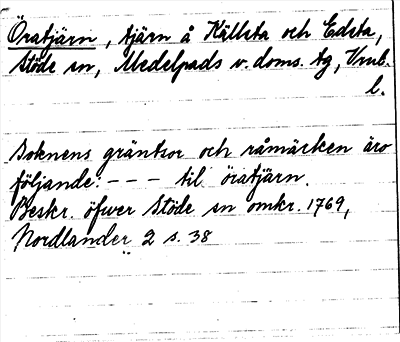 Öratjärn, tjärn å Källsta och Edsta,
Stöde sn, Medelpads v. doms. tg, Vnrb.
l.
Soknens gräntsor och råmärken äro
följande: - - - til öratjärn.
Beskr. öfwer Stöde sn omkr. 1769,
Nordlander 2 s. 38